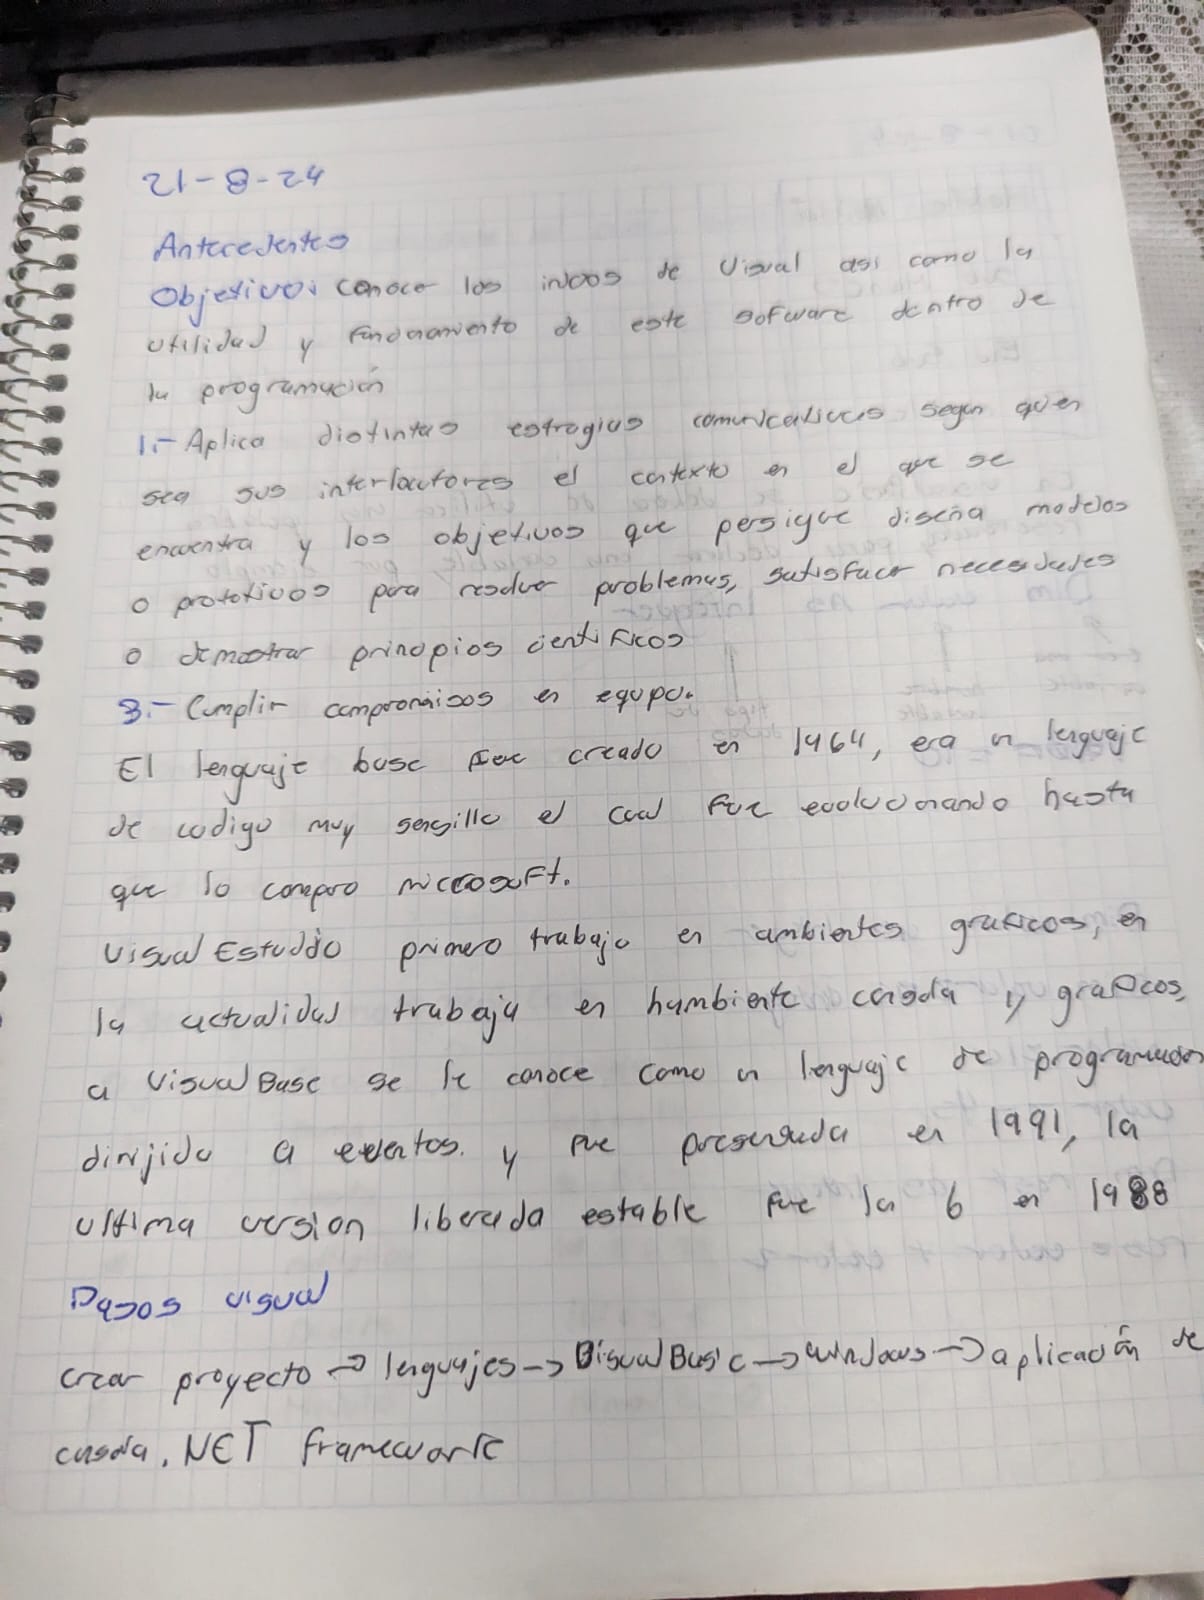 21-8-24
Antecedentes
Objetivo: conocer los inicios de Visual asi como la
utilidad y funcionamiento de este sofware dentro de
la programación
1.- Aplica distintas estrogias comunicativas segun quien
sea sus interlocutores el contexto en el que se
encuentra y los objetivos que persigue diseña modelos
o prototivos para resolver problemas, satisfacer necesidades
o demostrar principios cientificos
3.- Cumplir compromisos en equipo.
El lenguaje base fue creado en 1964, era un lenguaje
de codigo muy sensillo el cual fue evolucionando hasta
que lo compro microsoft.
Visual Estudio primero trabajo en ambientes graficos, en
la actualidad trabaja en hambiente consola y graficos,
a Visual Base se le conoce como un lenguaje de programacion
dirijido a eventos. y fue presentada en 1991, la
ultima version liberada estable fue la 6 en 1988
Pasos visual
crear proyecto → lenguajes → Bisual Basic → windows → aplicación de
consola .NET framework